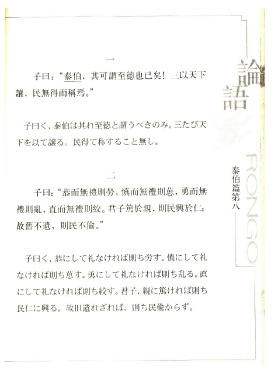 論語
RONGO
泰伯篇第八
一
子曰：“泰伯，其可謂至德也已矣！三以天下
讓，民無得而稱焉。”
子曰く、泰伯は其れ至德と謂うべきのみ。三たび天
下を以て譲る。民得て称すること無し。
二
子曰：“恭而無禮則勞，慎而無禮則葸，勇而無
禮則亂，直而無禮則絞。君子篤於親，則民興於仁；
故舊不遺，則民不偷。”
子曰く、恭にして礼なければ則ち労す。慎にして礼
なければ則ち葸す。勇にして礼なければ則ち乱る。直
にして礼なければ則ち絞す。君子、親に篤ければ則ち
民仁に興る。故旧遺れざれば、則ち民偸からず。